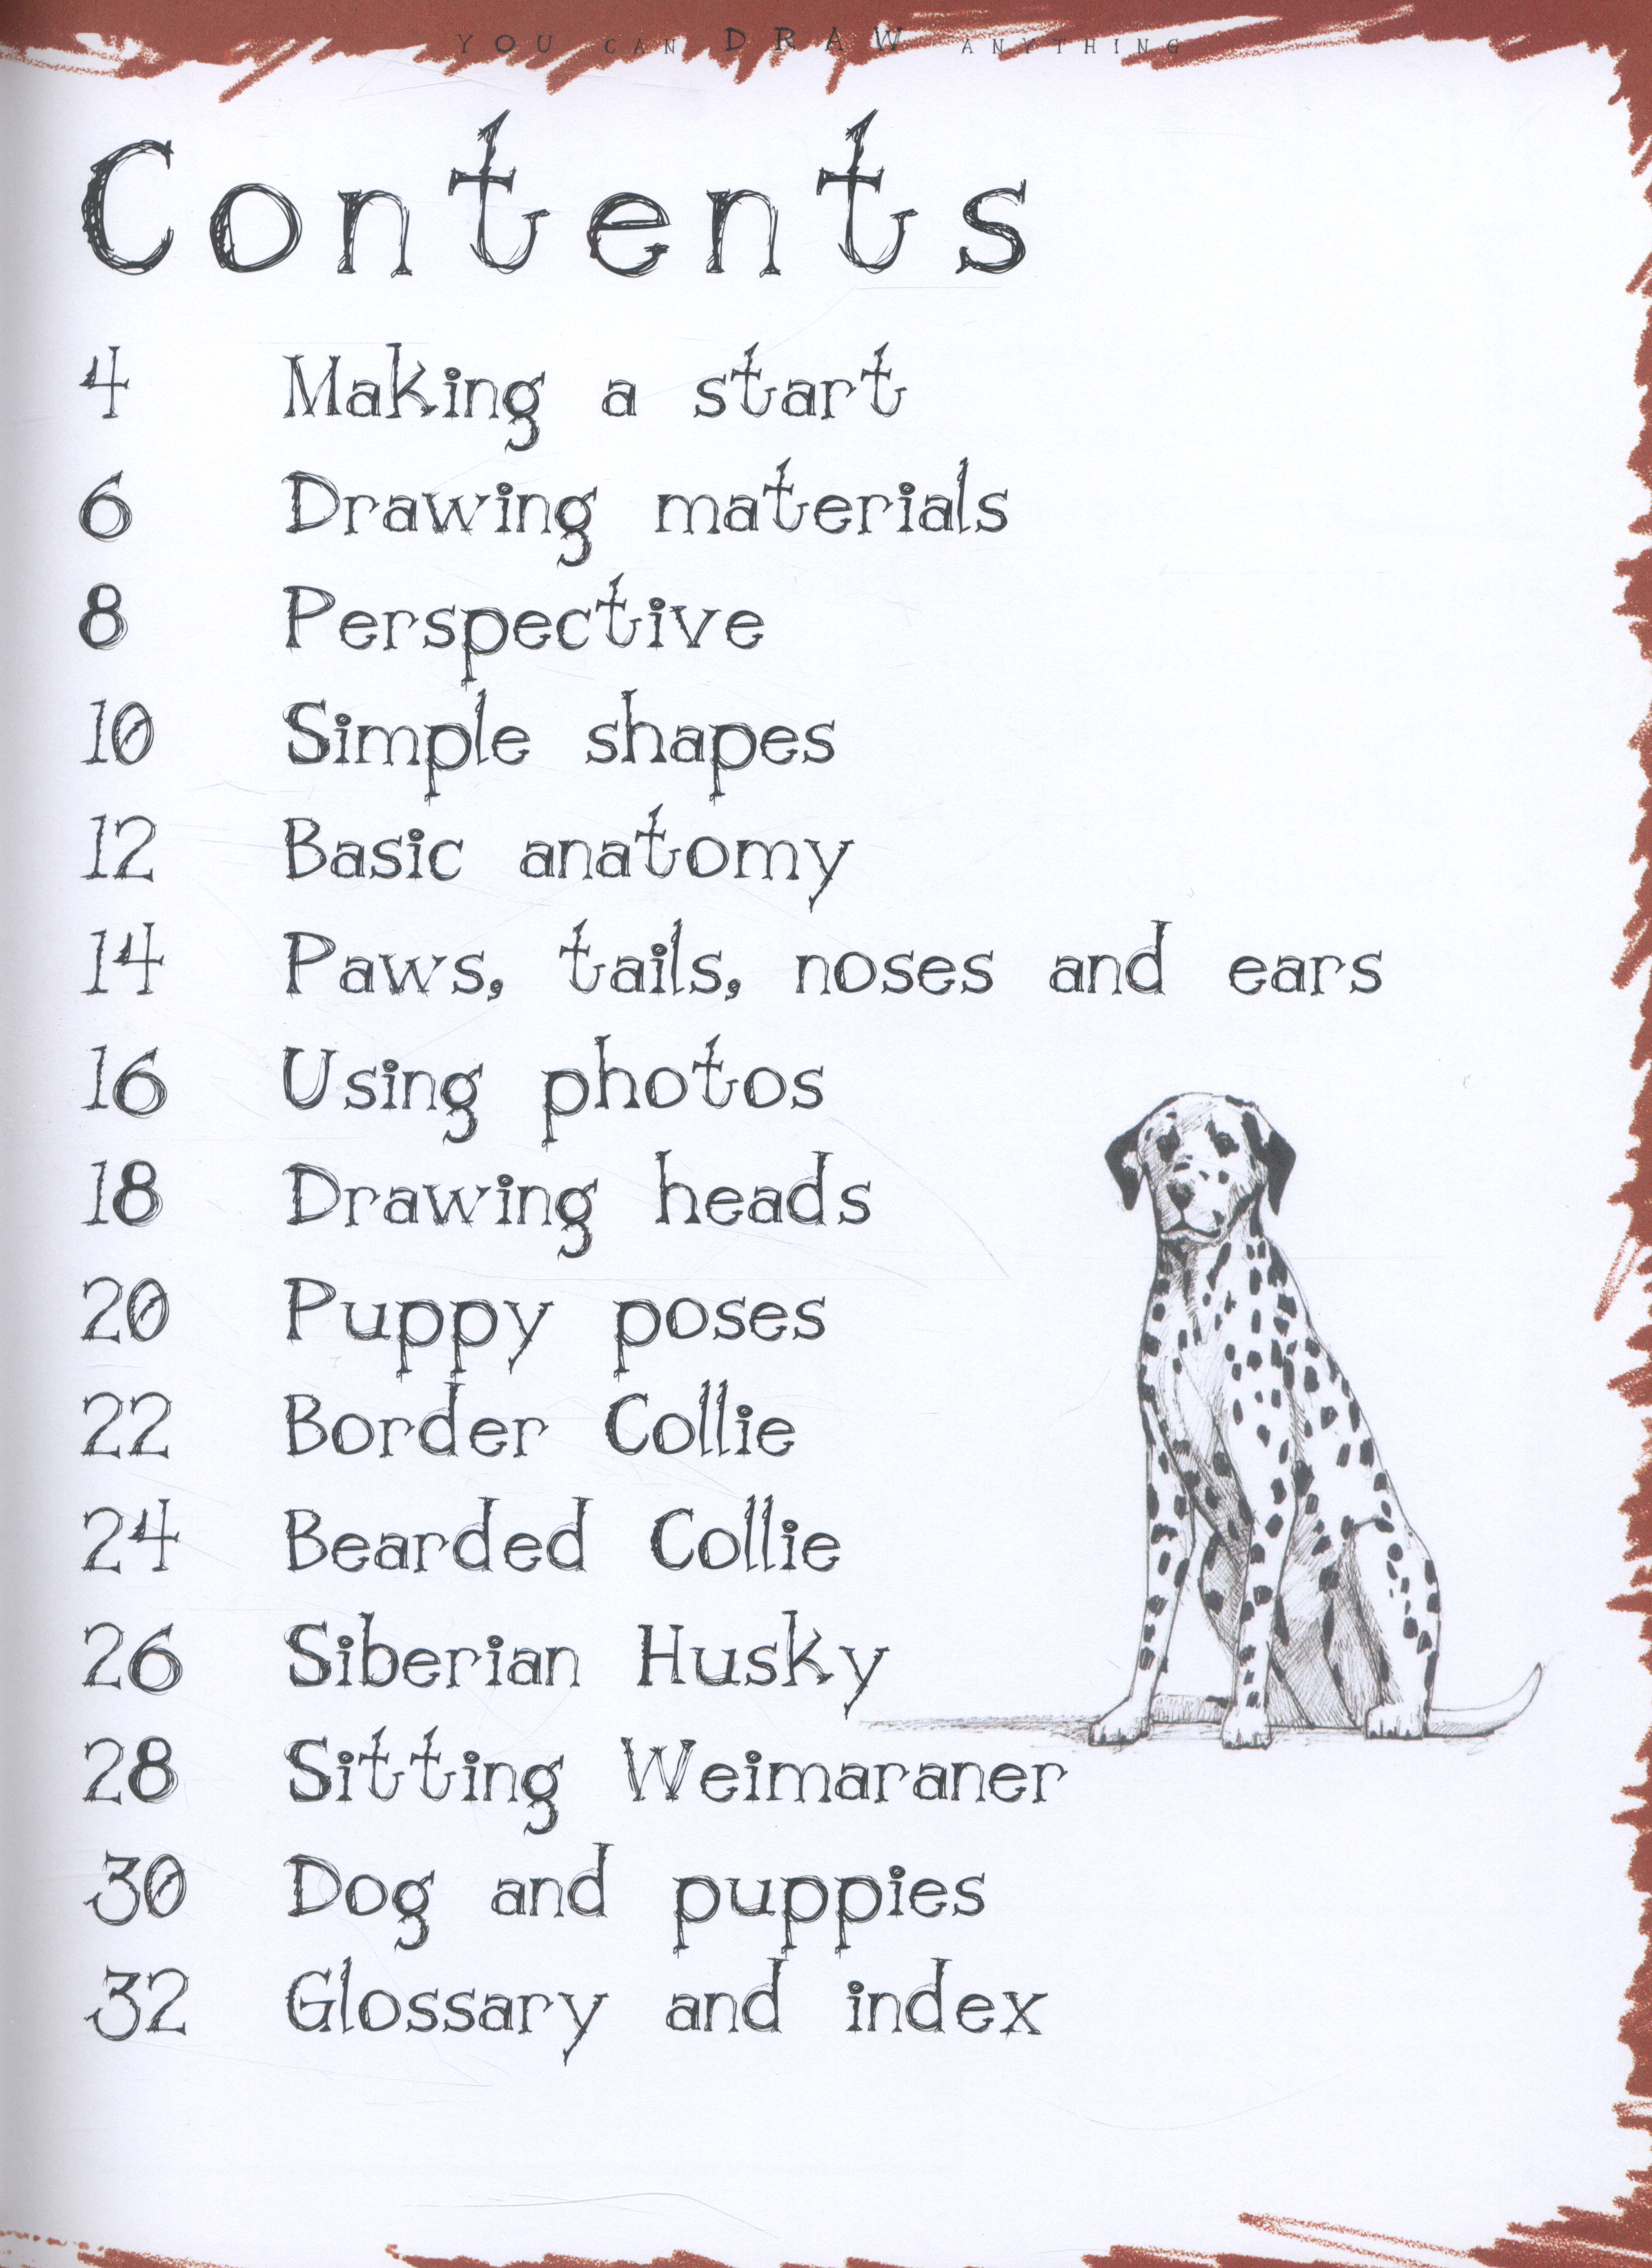 YOU CAN DRAW ANYTHING
Contents
4 Making a start
6 Drawing materials
8 Perspective
10 Simple shapes
12 Basic anatomy
14 Paws, tails, noses and ears
16 Using photos
18 Drawing heads
20 Puppy poses
22 Border Collie
24 Bearded Collie
26 Siberian Husky
28 Sitting Weimaraner
30 Dog and puppies
32 Glossary and index